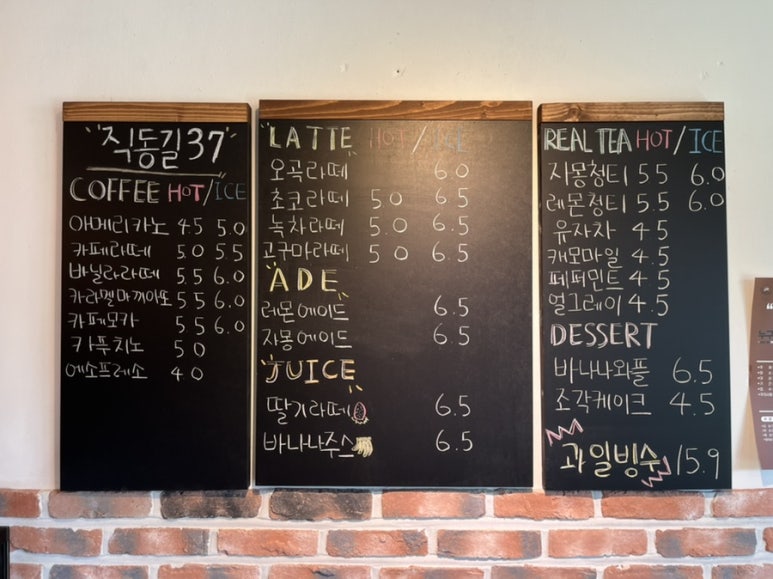 직동길37
COFFEE HOT/ICE
아메리카노 4.5 5.0
카페라떼 5.0 5.5
바닐라라떼 5.5 6.0
카라멜마끼아또 5.5 6.0
카페모카 5.5 6.0
카푸치노 5.0
에소프레소 4.0
LATTE HOT/ICE
오곡라떼 6.0
초코라떼 5.0 6.5
녹차라떼 5.0 6.5
고구마라떼 5.0 6.5
ADE
레몬에이드 6.5
자몽에이드 6.5
JUICE
딸기라떼 6.5
바나나주스 6.5
REAL TEA HOT/ICE
자몽청티 5.5 6.0
레몬청티 5.5 6.0
유자차 4.5
캐모마일 4.5
페퍼민트 4.5
얼그레이 4.5
DESSERT
바나나와플 6.5
조각케이크 4.5
과일빙수 15.9